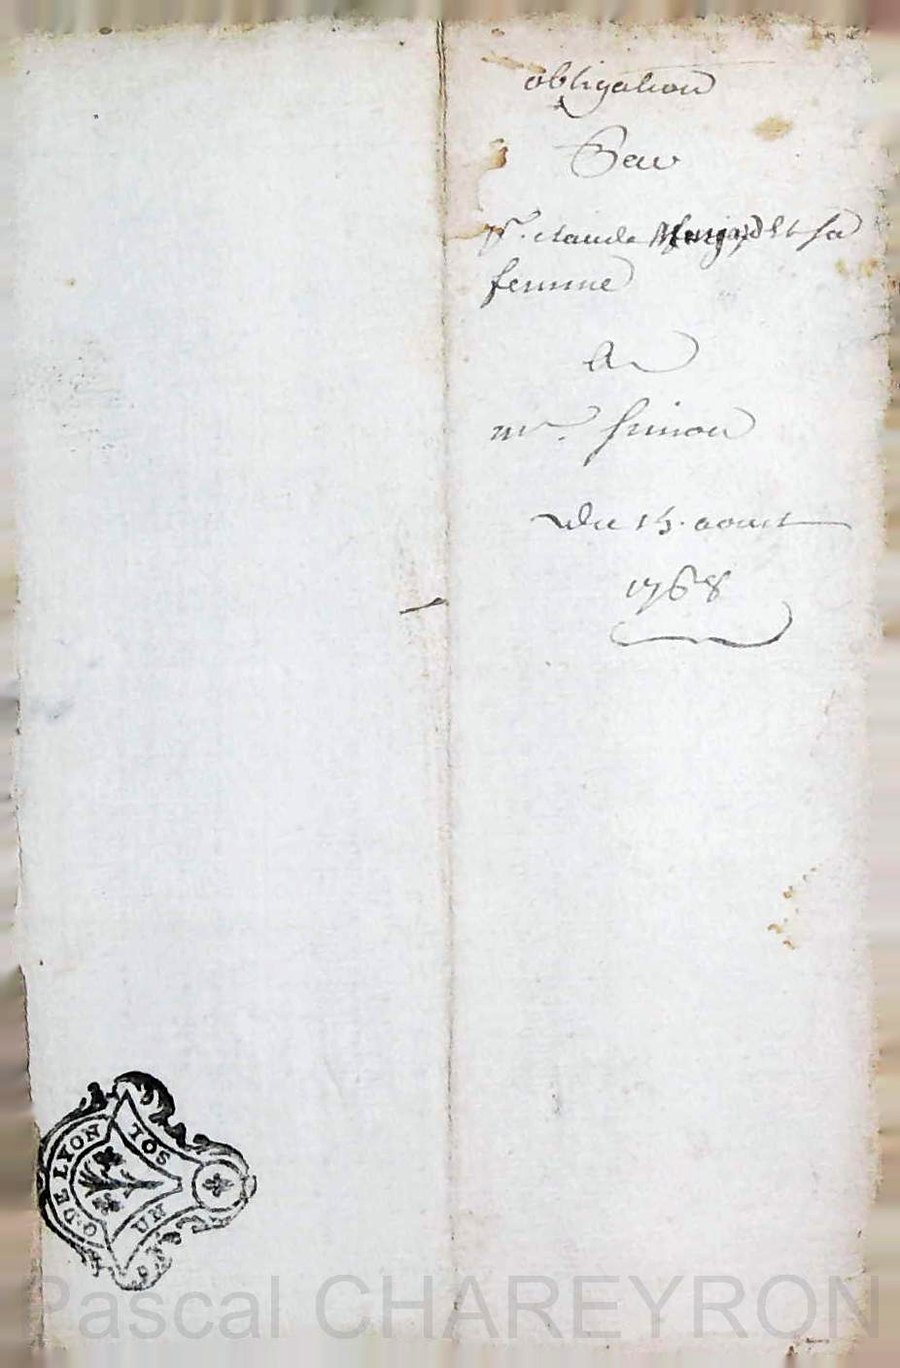 obligation
Par
Sr. claude Et sa
femme
A
mr. Simon
du 15. aoust
1768
G. DE LYON
UN SOL
Pascal CHAREYRON